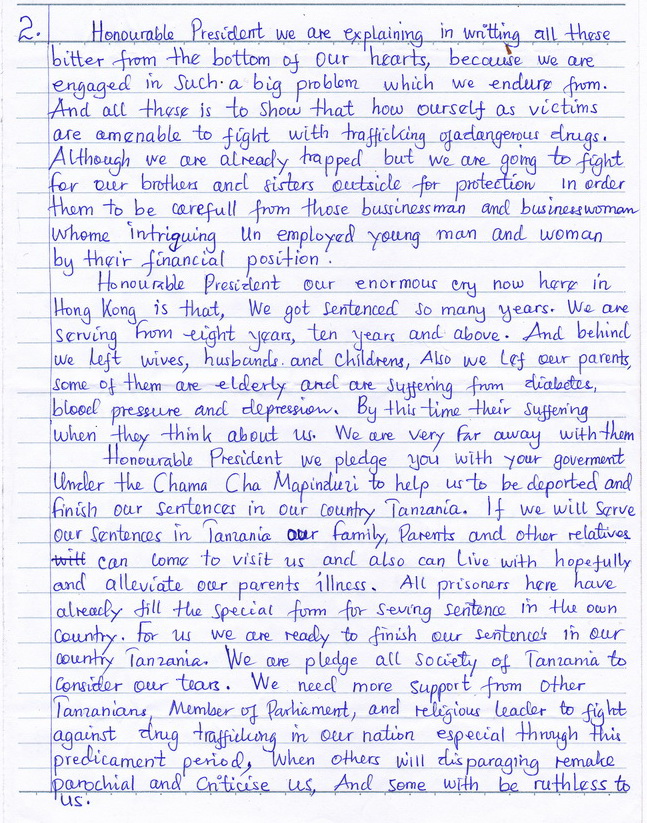 2. Honourable President we are explaining in writting all these
bitter from the bottom of our hearts, because we are
engaged in such a big problem which we endure from.
And all these is to show that how ourself as victims
are amenable to fight with trafficking ofadangerous drugs.
Although we are already trapped but we are going to fight
for our brothers and sisters outside for protection in order
them to be carefull from those bussinessman and businesswoman
whome intriguing Un employed young man and woman
by their financial position.
Honourable President our enormous cry now here in
Hong Kong is that, We got sentenced so many years. We are
serving from eight years, ten years and above. And behind
we left wives, husbands. and Childrens, Also we Lef our parents,
some of them are elderly and are suffering from diabetes,
blood pressure and depression. By this time their suffering
when they think about us. We are very far away with them
Honourable President we pledge you with your goverment
Under the Chama Cha Mapinduzi to help us to be deported and
finish our sentences in our country Tanzania. If we will serve
our sentences in Tanzania our family, Parents and other relatives
will can come to visit us and also can Live with hopefully
and alleviate our parents illness. All prisoners here have
already fill the special form for seving sentence in the own
Country. For us we are ready to finish our sentences in our
country Tanzania. We are pledge all society of Tanzania to
Consider our tears. We need more support from other
Tanzanians, Member of Parliament, and religious leader to fight
against drug trafficking in our nation especial through this
predicament period, When others will disparaging remake
parochial and Criticise us, And some with be ruthless to
us.